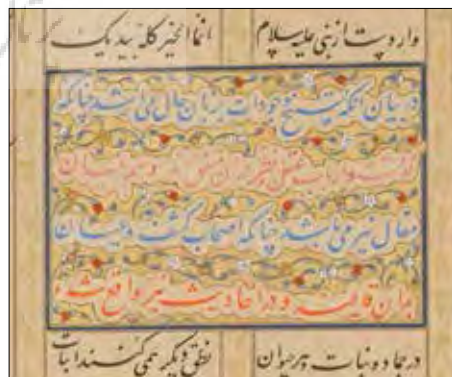 واردست از نبی علیه سلام
انما الخیر کله بیدیک
در بیان آنکه تسبیح موجودات بزبان حال می باشد چنانکه
مقال نیز می باشد چنانکه اصحاب کشف و عیان
بدان قایلند و در احادیث نیز واقع شده
در جماد و نبات و هر حیوان
نطقی دیگر همی کنند اثبات